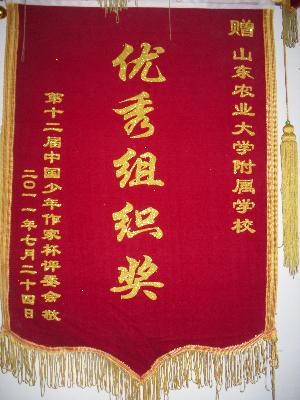 赠 山东农业大学附属学校
优秀组织奖
第十二届中国少年作家杯评委会敬
二〇一一年七月二十四日